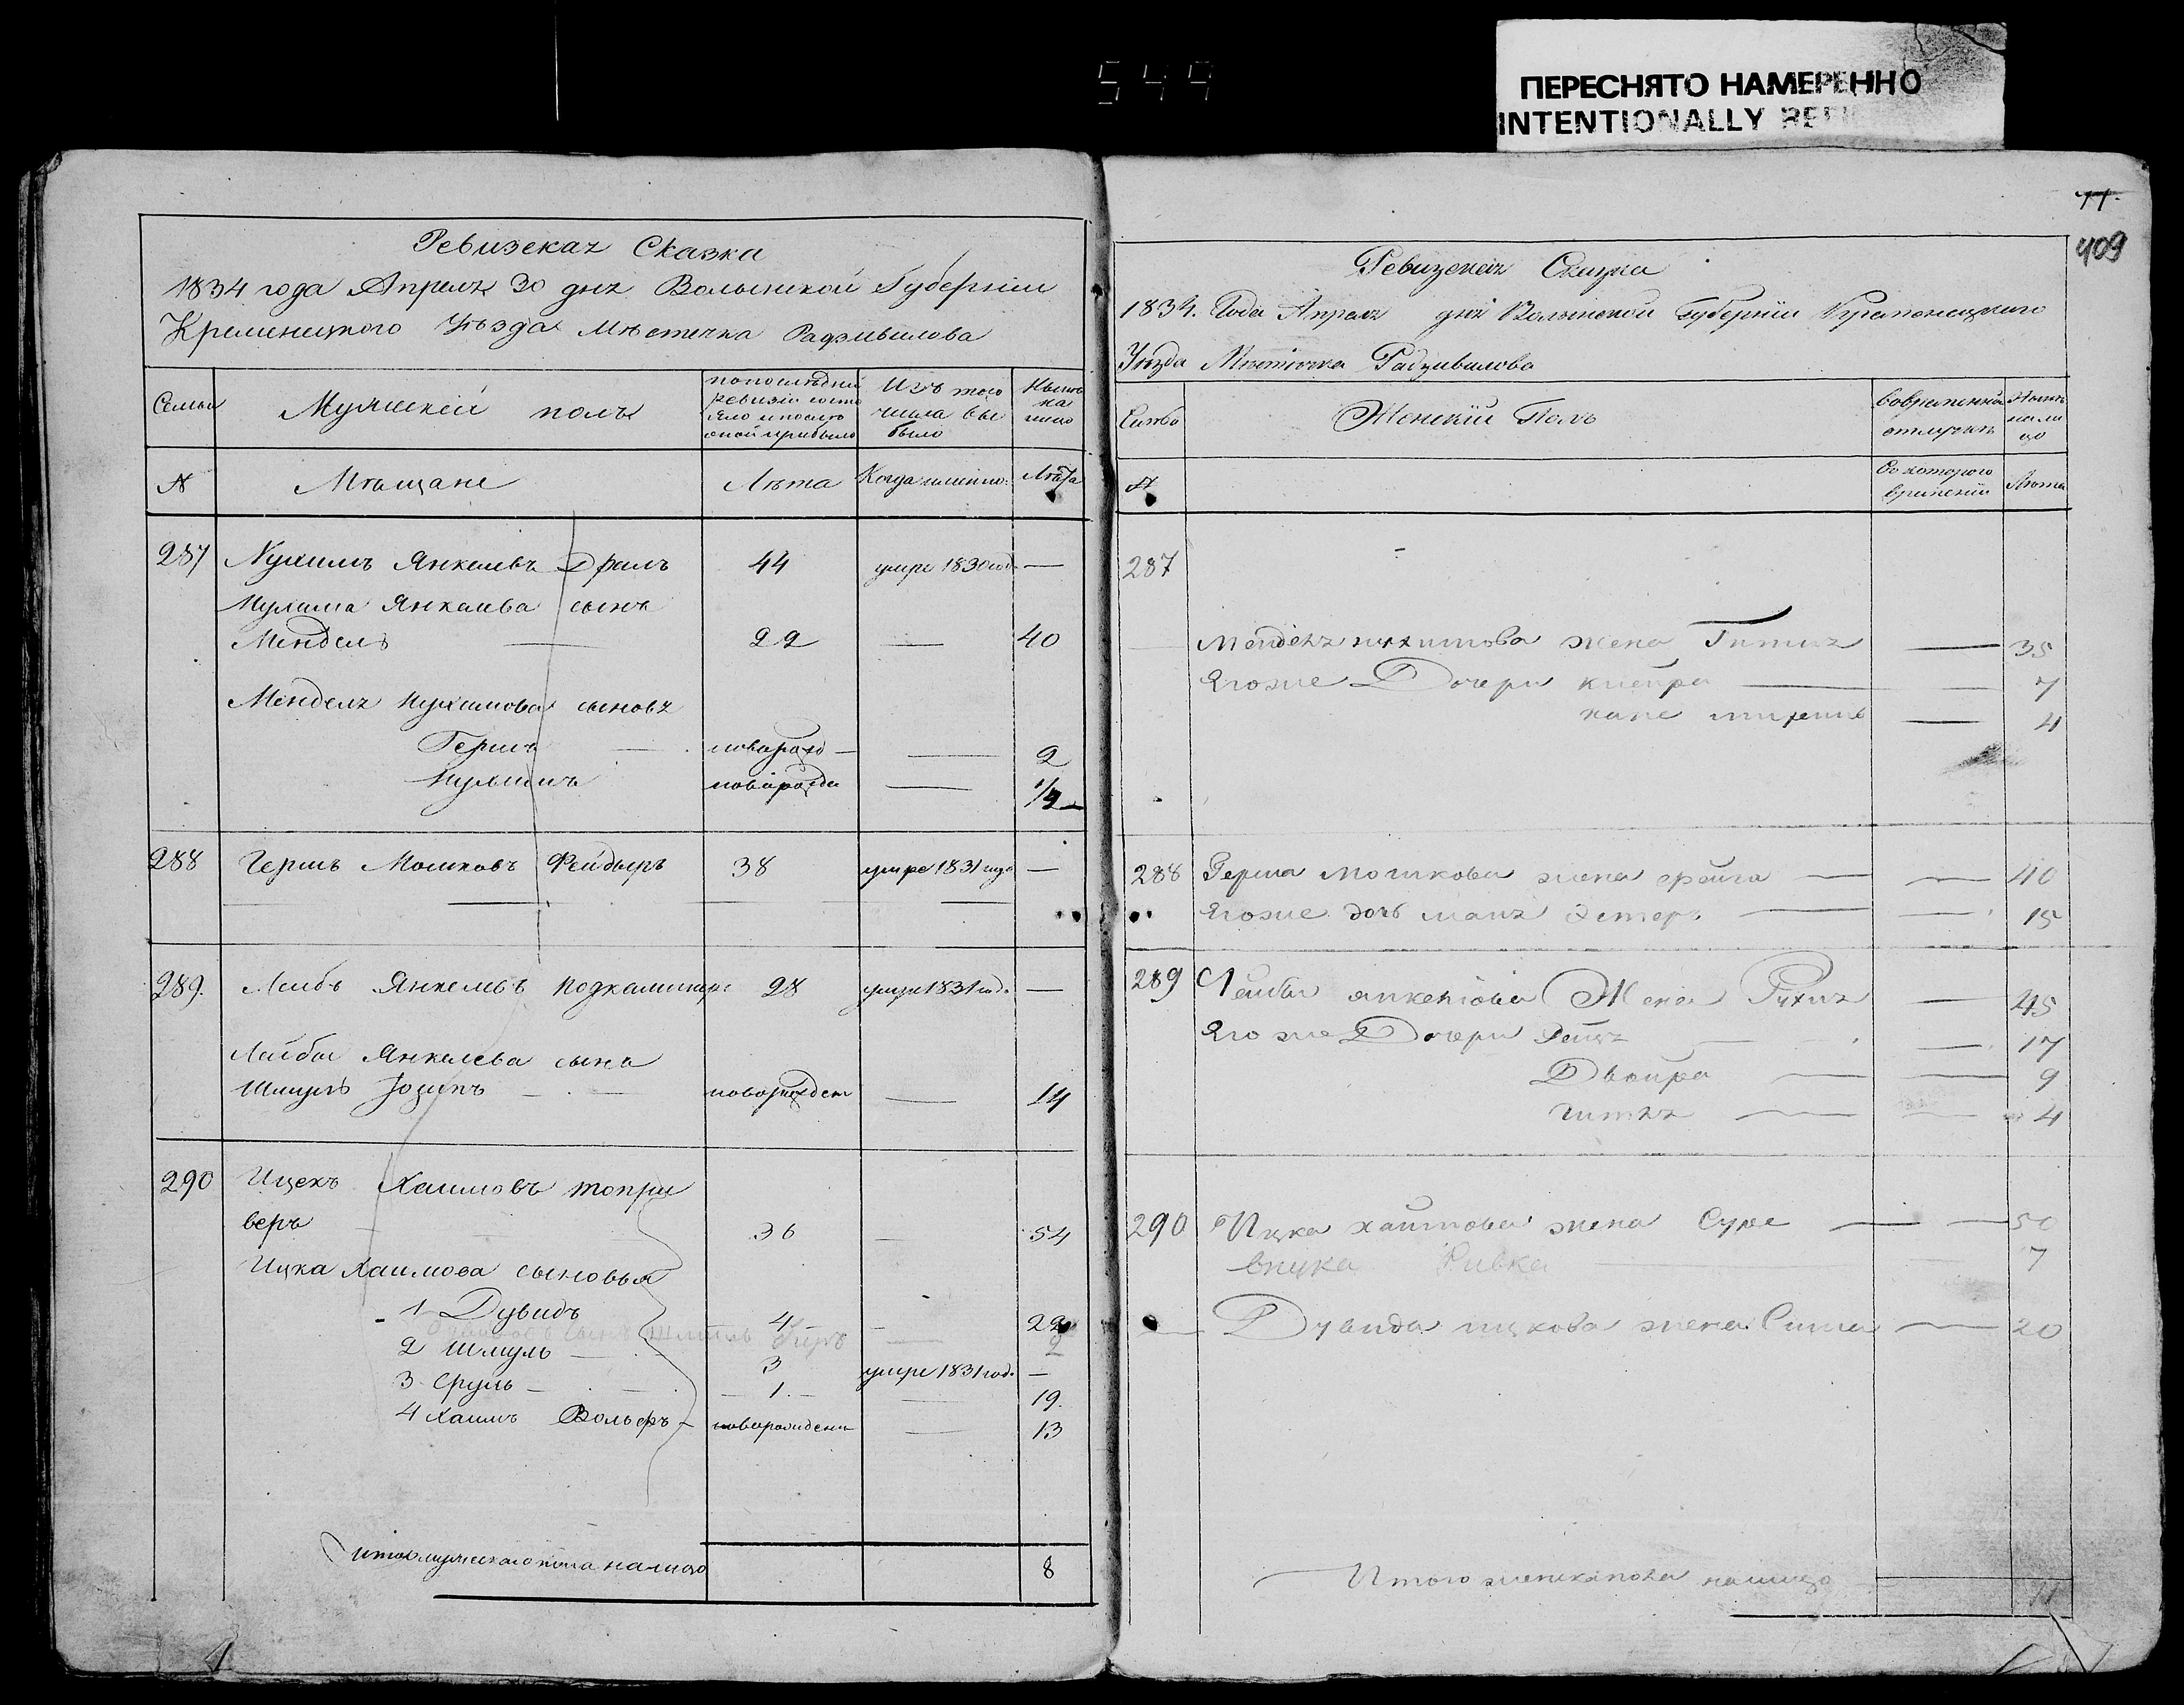 549
ПЕРЕСНЯТО НАМЕРЕННО
INTENTIONALLY
11
409
Ревизская Сказка
1834 года Апреля 30 дня Волынской Губернии
Кременецкого Уѣзда Мѣстечка Радзивилова
Семьи
Мужескій полъ
Изъ того числа выбыло
Нынѣ на лицо
№
Мѣщане
Лѣта
Когда именно
Лѣта
287 Нухимъ Янкелевъ Драль 44 умре 1830 год. —
Нухима Янкелева сынъ
Мендель — 22 — 40
Менделя Нухимова сыновя
Гершъ — новорожд — — 2
Нухимъ новорожде — 1/2
288 Гершъ Мошковъ Фейдыръ 38 умре 1831 года —
289. Лейбъ Янкелевъ Подкаминеръ 28 умре 1831 год. —
Лейбы Янкелева сынъ
Шмуль Іозипъ — новорожден — 14
290 Ицекъ Хаимовъ топри
веръ 36 — 54
Ицка Хаимова сыновья
1 Дувидъ 4 — 22
сынъ 2
2 Шмуль — 3 умре 1831 год. —
3 Сруль — 1. — 19.
4 Хаимъ Вольфъ — новорожденъ — 13
Итого мужескаго пола на лицо 8
Ревизская Сказка
1834. Года Апреля дня Волынской Губерніи Кременецкого
Уѣзда Мѣстечка Радзивилова
Семьи
Женскій Полъ
Во временной отлучкѣ
Нынѣ на лицо
№
Съ которого времени
Лѣта
287
Менделя нухимова жена Гитля — 35
Егоже Дочери кнейра — 7
хане — 4
288 Герша мошкова жена фейга — 40
Егоже дочь маля Эстеръ — 15
289 Лейбы янкелова Жена Рухля — 45
Его же Дочери Рейзя — 17
Двойра — 9
гитля — 4
290 Ицка хаимова жена Суре — 50
внука Ривка 7
Дувида ицкова жена Сима — 20
Итого женска пола на лицо 11